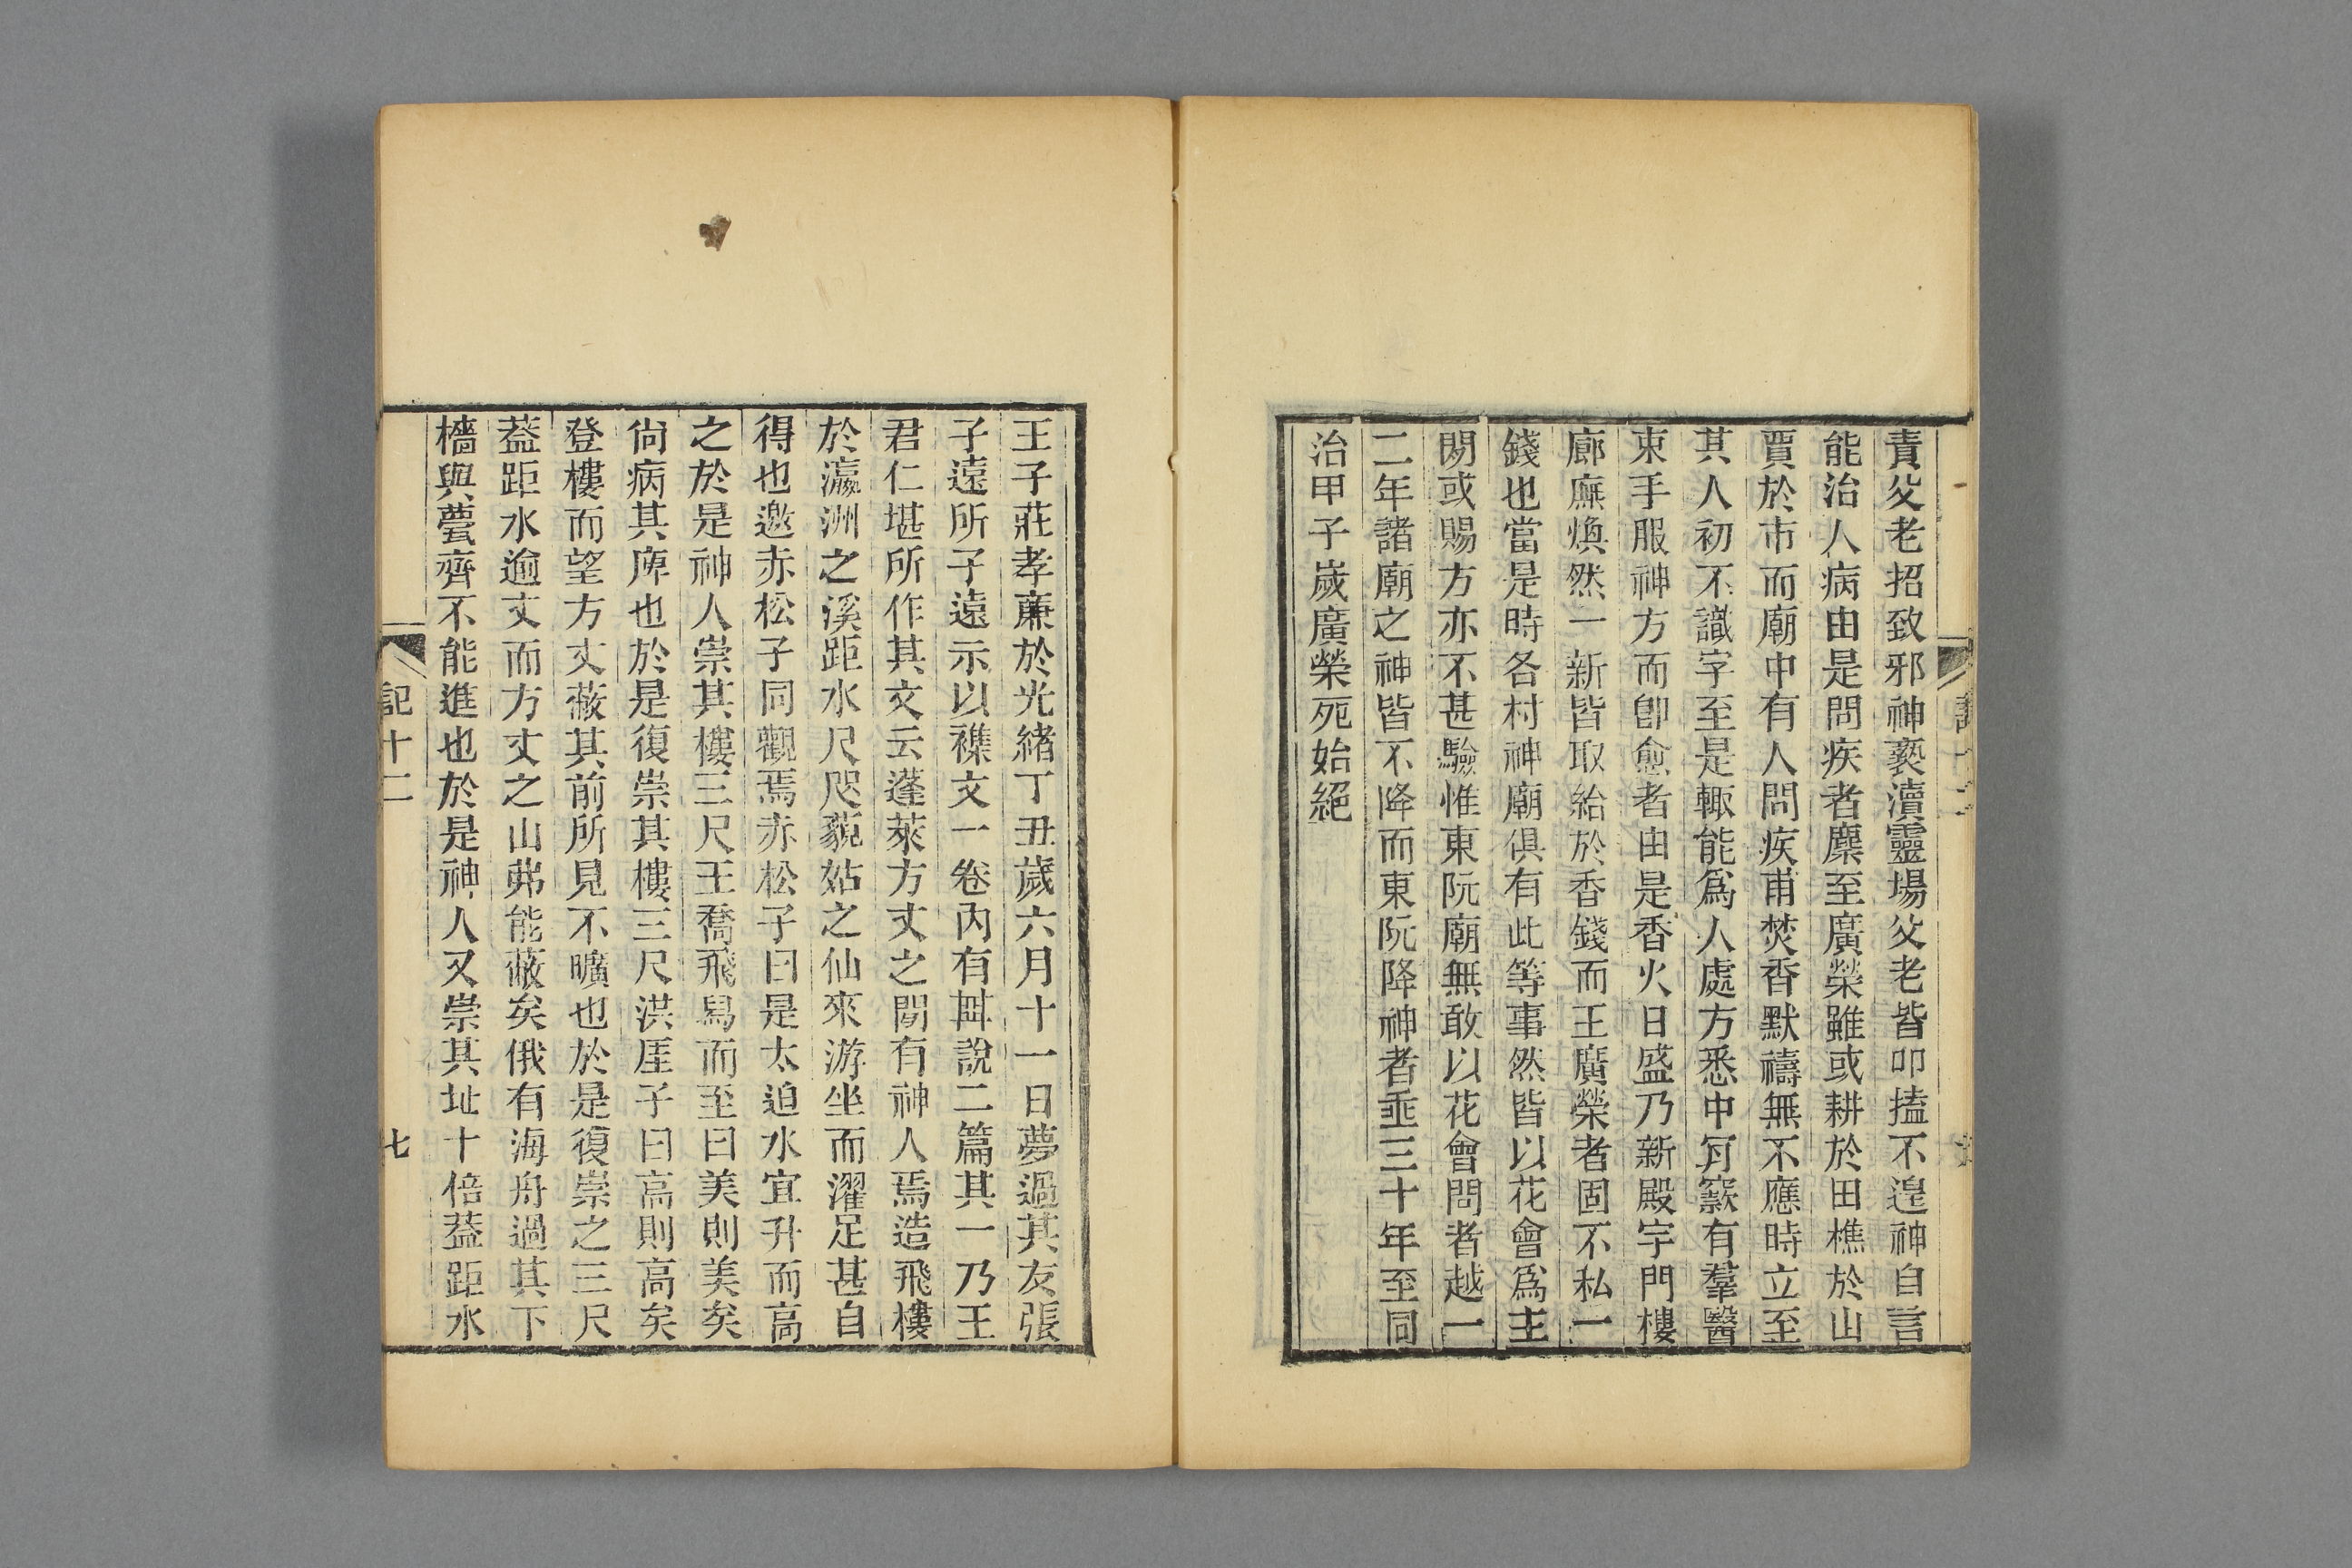 責父老招致邪神褻瀆靈場父老皆叩搕不遑神自言
能治人病由是問疾者麇至廣榮雖或耕於田樵於山
賈於市而廟中有人問疾甫焚香默禱無不應時立至
其人初不識字至是輙能爲人處方悉中肎窾有羣醫
束手服神方而卽愈者由是香火日盛乃新殿宇門樓
廊廡煥然一新皆取給於香錢而王廣榮者固不私一
錢也當是時各村神廟俱有此等事然皆以花會爲主
閒或賜方亦不甚驗惟東阮廟無敢以花會問者越一
二年諸廟之神皆不降而東阮降神者垂三十年至同
治甲子歲廣榮死始絕
王子莊孝廉於光緒丁丑歲六月十一日夢過其友張
子遠所子遠示以襍文一卷內有㽕說二篇其一乃王
君仁堪所作其文云蓬萊方丈之閒有神人焉造飛樓
於瀛洲之溪距水尺咫藐姑之仙來游坐而濯足甚自
得也邀赤松子同觀焉赤松子曰是太迫水宜升而高
之於是神人崇其樓三尺王喬飛舄而至曰美則美矣
尙病其庳也於是復崇其樓三尺洪厓子曰高則高矣
登樓而望方丈蔽其前所見不曠也於是復崇之三尺
葢距水逾丈而方丈之山弗能蔽矣俄有海舟過其下
檣與甍齊不能進也於是神人又崇其址十倍葢距水
記十二
七